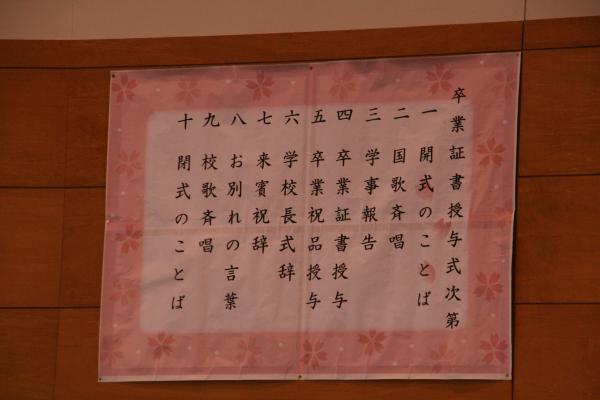 卒業証書授与式次第
一 開式のことば
二 国歌斉唱
三 学事報告
四 卒業証書授与
五 卒業祝品授与
六 学校長式辞
七 来賓祝辞
八 お別れの言葉
九 校歌斉唱
十 閉式のことば